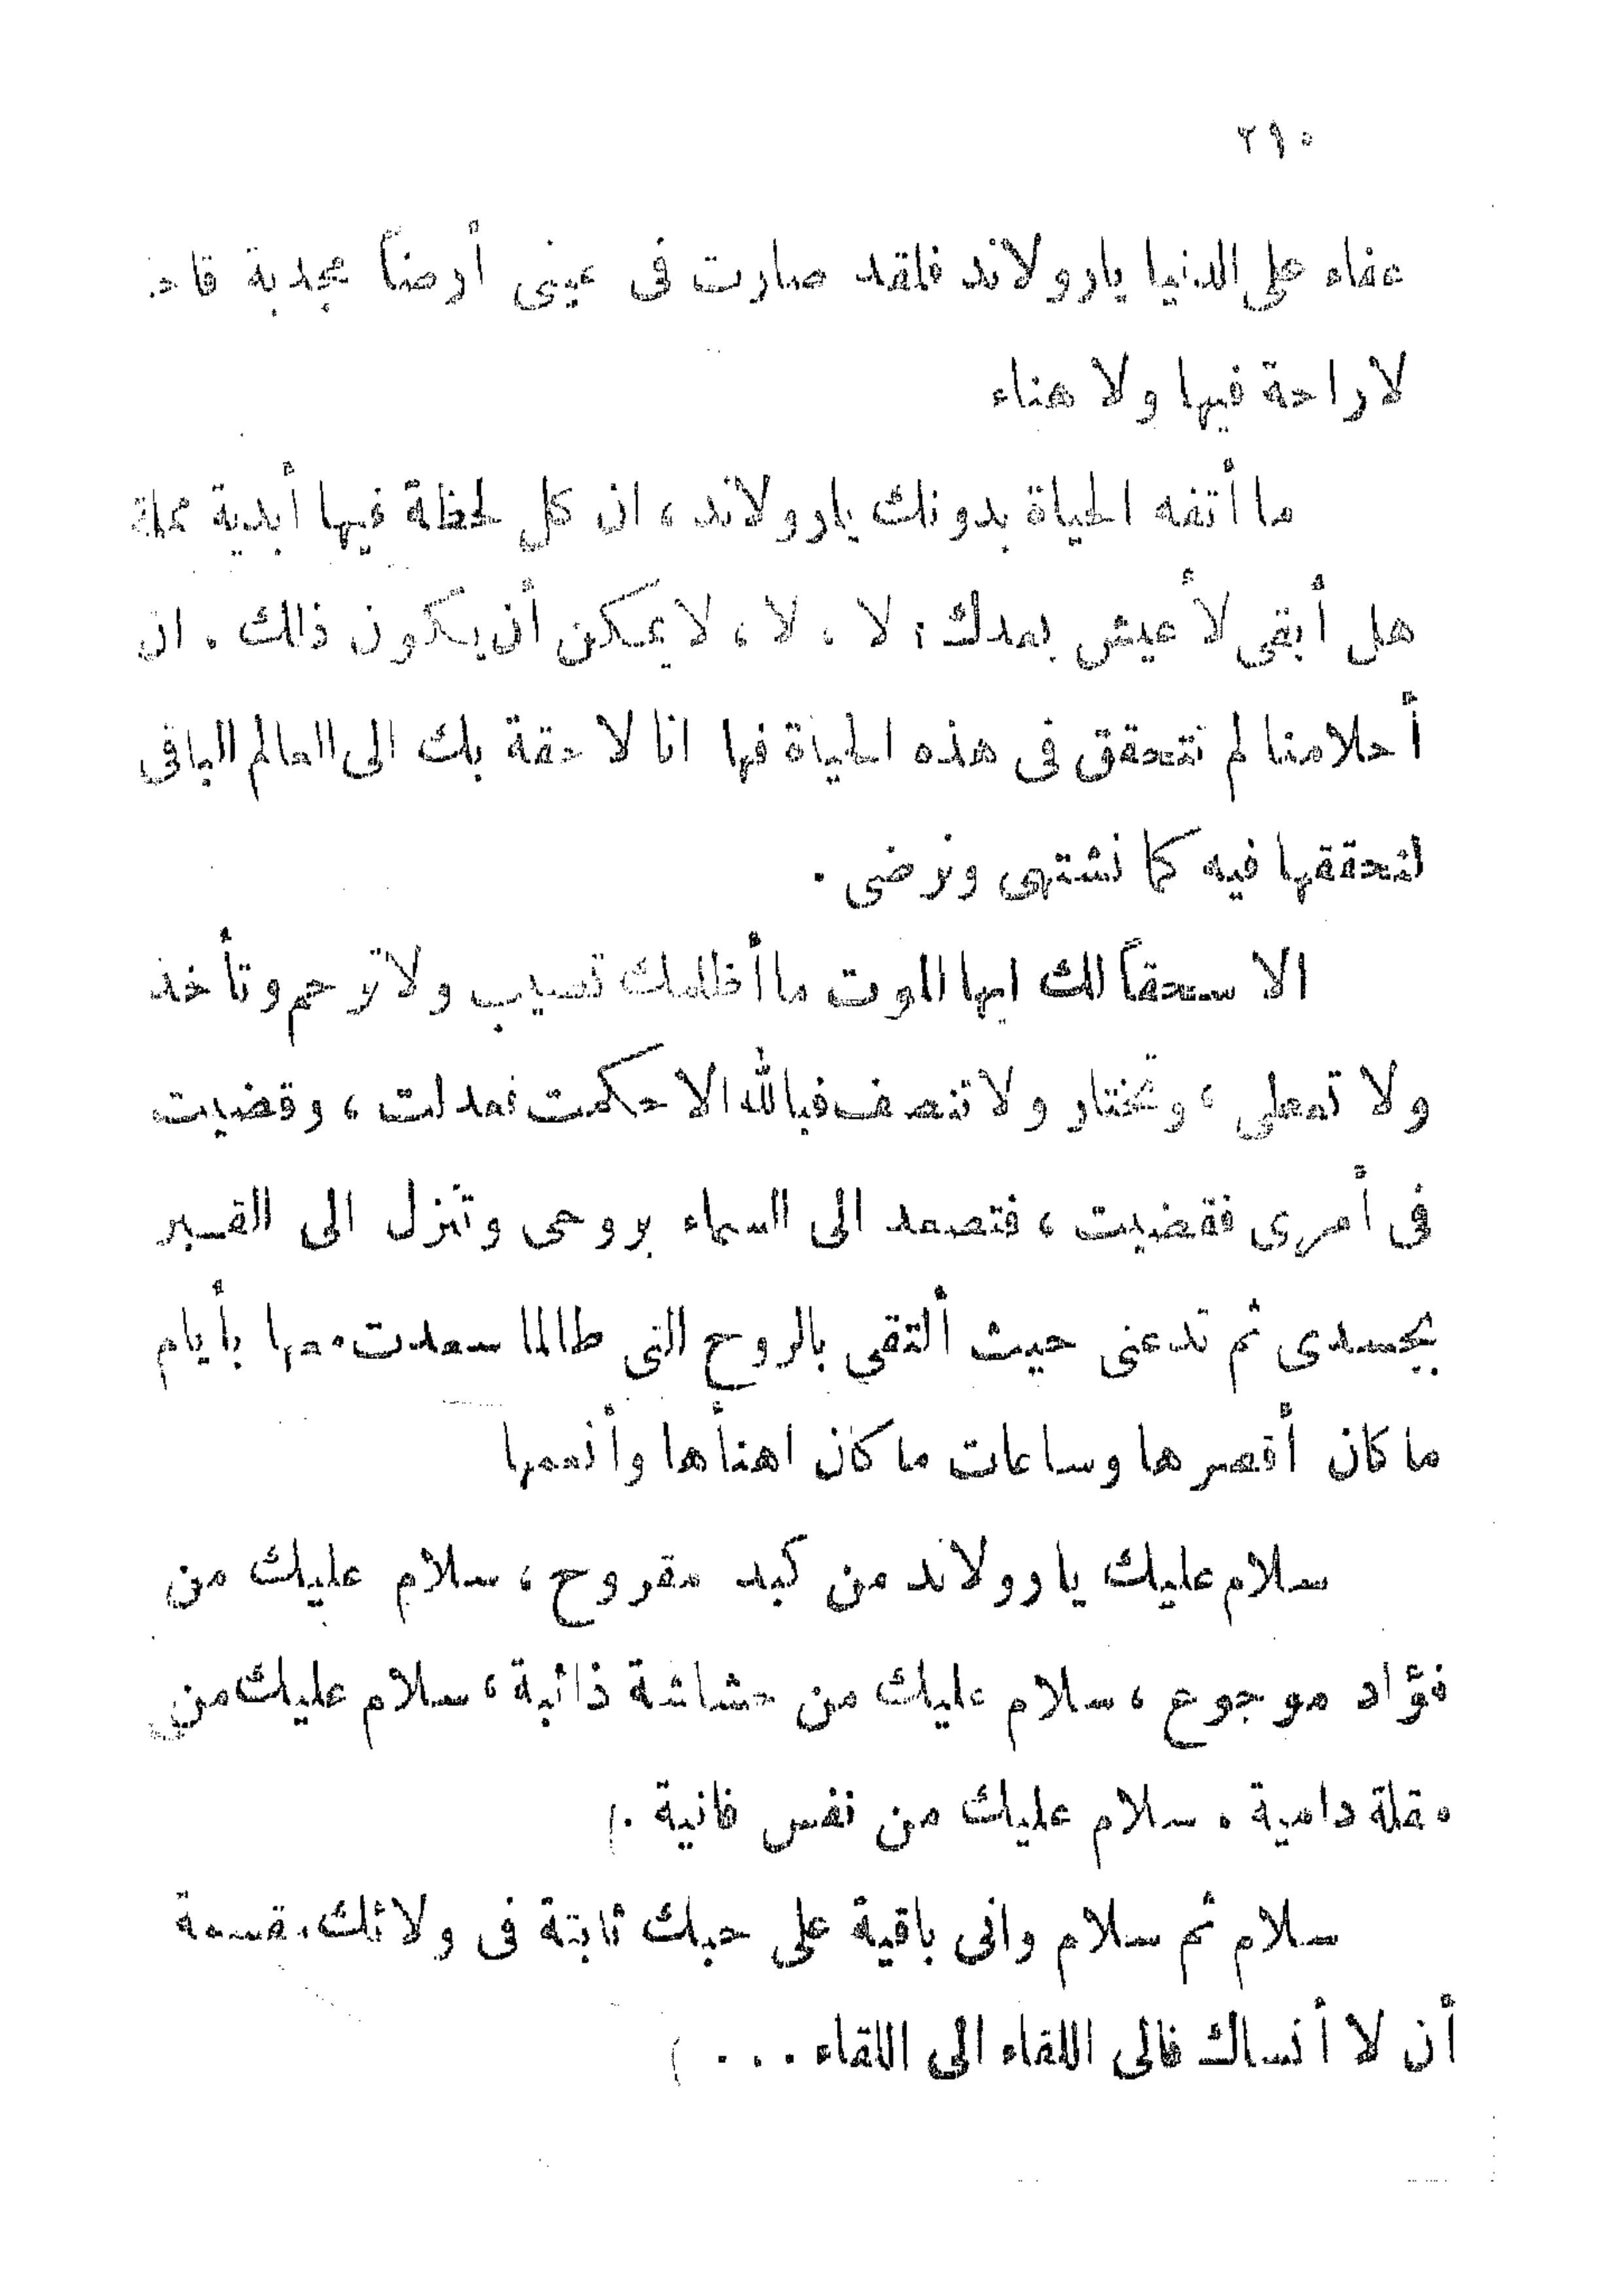 ٢٩٠
عفاء على الدنيا يارولاند فلقد صارت فى عينى أرضاً مجدبة
لا راحة فيها ولا هناء
ما أتفه الحياة بدونك يارولاند ، ان كل لحظة فيها أبدية مملة
هل أبقى لأعيش بعدك ؛ لا ، لا ، لا يمكن أن يكون ذلك . ان
أحلامنا لم تتحقق فى هذه الحياة فها انا لاحقة بك الى العالم الباقى
لنحققها فيه كما نشتهى ونرضى .
الا سحقاً لك ايها الموت ما أظلمك تصيب ولا ترحم وتأخذ
ولا تعطى ، وتختار ولا تنصف فبالله الا حكمت فعدلت ، وقضيت
فى أمرى فقضيت ، فتصعد الى السماء بروحى وتنزل الى القبر
بجسدى ثم تدعنى حيث ألتقى بالروح التى طالما سعدت معها بأيام
ما كان أقصرها وساعات ما كان اهنأها وأنعمها
سلام عليك يارولاند من كبد مقروح ، سلام عليك من
فؤاد موجوع ، سلام عليك من حشاشة ذائبة ، سلام عليك من
مقلة دامية . سلام عليك من نفس فانية .)
سلام ثم سلام وانى باقية على حبك ثابتة فى ولائك مقسمة
أن لا أنساك فالى اللقاء الى اللقاء . . . )